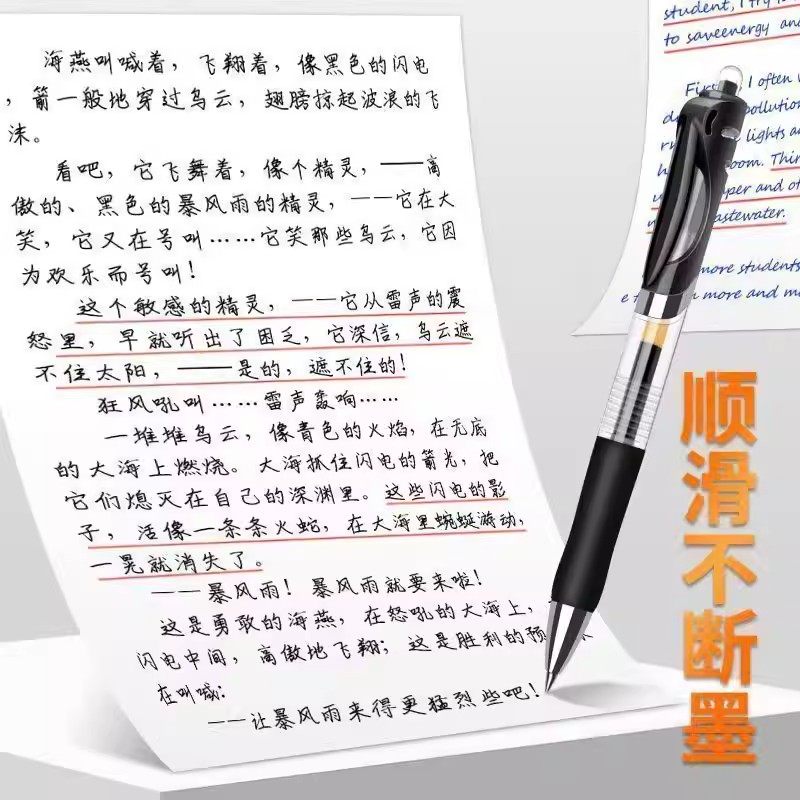 海燕叫喊着，飞翔着，像黑色的闪电
，箭一般地穿过乌云，翅膀掠起波浪的飞
沫。
看吧，它飞舞着，像个精灵，——高
傲的、黑色的暴风雨的精灵，——它在大
笑，它又在号叫……它笑那些乌云，它因
为欢乐而号叫！
这个敏感的精灵，——它从雷声的震
怒里，早就听出了困乏，它深信，乌云遮
不住太阳，——是的，遮不住的！
狂风吼叫……雷声轰响……
一堆堆乌云，像青色的火焰，在无底
的大海上燃烧。大海抓住闪电的箭光，把
它们熄灭在自己的深渊里。这些闪电的影
子，活像一条条火蛇，在大海里蜿蜒游动，
一晃就消失了。
——暴风雨！暴风雨就要来啦！
这是勇敢的海燕，在怒吼的大海上，
闪电中间，高傲地飞翔；这是胜利的预
在叫喊：
——让暴风雨来得更猛烈些吧！
student, I try
to saveenergy and
I often
pollution
lights a
room.
per and
astewater.
more students
more and m
顺滑不断墨